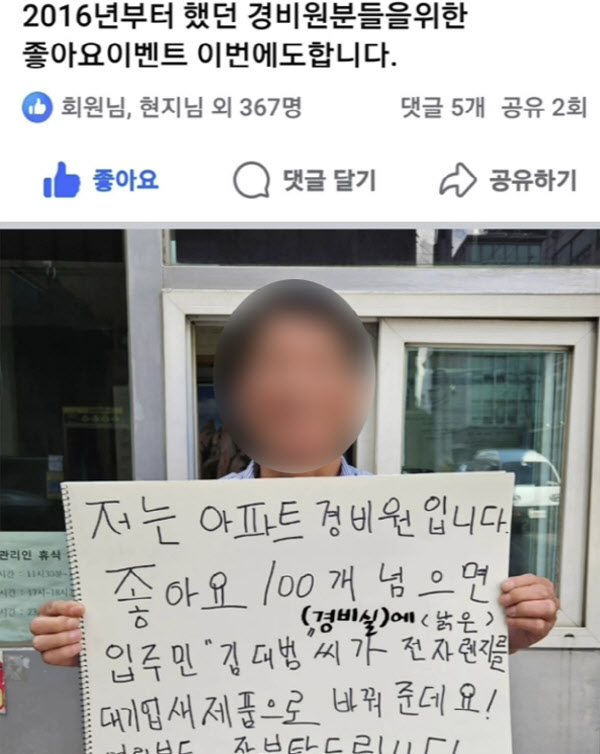 2016년부터 했던 경비원분들을위한
좋아요이벤트 이번에도합니다.
회원님, 현지님 외 367명 댓글 5개 공유 2회
좋아요 댓글 달기 공유하기
관리인 휴식
저는 아파트 경비원입니다.
좋아요 100개 넘으면
(경비실)에 <낡은>
입주민 "김대범"씨가 전자렌지를
대기업새제품으로 바꿔 준데요!